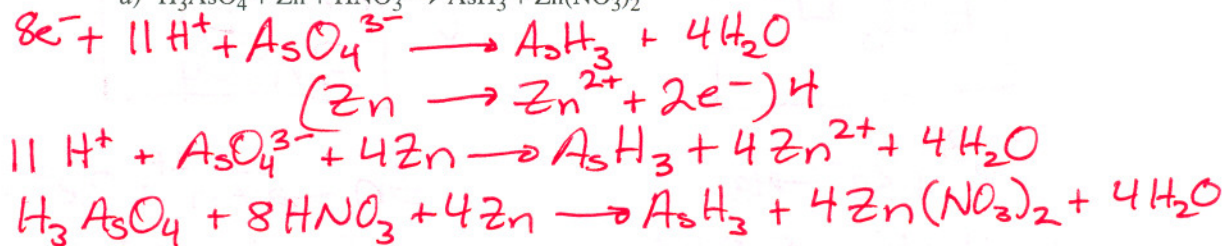 a) H₃AsO₄ + Zn + HNO₃ → AsH₃ + Zn(NO₃)₂
8e⁻ + 11 H⁺ + AsO₄³⁻ → AsH₃ + 4H₂O
(Zn → Zn²⁺ + 2e⁻)4
11 H⁺ + AsO₄³⁻ + 4Zn → AsH₃ + 4Zn²⁺ + 4H₂O
H₃AsO₄ + 8HNO₃ + 4Zn → AsH₃ + 4Zn(NO₃)₂ + 4H₂O